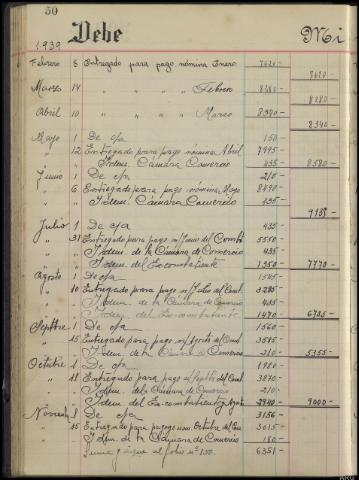 50
Debe Mi
1939
Febrero 8 Entregado para pago nómina Enero 7620-
7620-
Marzo 14 " " " " Febrero 8280-
8280-
Abril 10 " " " " Marzo 8340-
8340-
Mayo 1 De c/a 150-
" 12 Entregado para pago nómina Abril 7995-
" Idem. Cámara Comercio 435- 8580-
Junio 1 De c/a 210-
" 6 Entregado para pago nómina Mayo 8490-
" Idem. Cámara Comercio 435-
9135-
Julio 1 De c/a 435-
" 31 Entregado para pago n/ Junio del Comb 5550-
" Idem. de la Cámara de Comercio 435-
" Idem. del Excombatiente 1350- 7770-
Agosto 1 De c/a 1545-
" 10 Entregado para pago n/ Julio del Comb 3285-
" Idem. de la Cámara de Comercio 435-
" Idem. del Ex-combatiente 1470- 6735-
Septbre 1 De c/a 1560-
" 15 Entregado para pago n/ Agosto del Comb 3585-
" Idem. de la Cámara de Comercio 210- 5355-
Octubre 1 De c/a 1980-
" 18 Entregado para pago n/ Septbre del Comb 3870-
" Idem. de la Cámara de Comercio 210-
" Idem. del Ex-combatiente y Agosto 2940- 9000-
Noviembre 1 De c/a 3156-
" 15 Entregado para pago nom. Octubre del 3015-
" Idem. de la Cámara de Comercio 180-
Suma y sigue al folio nº 150. 6351-